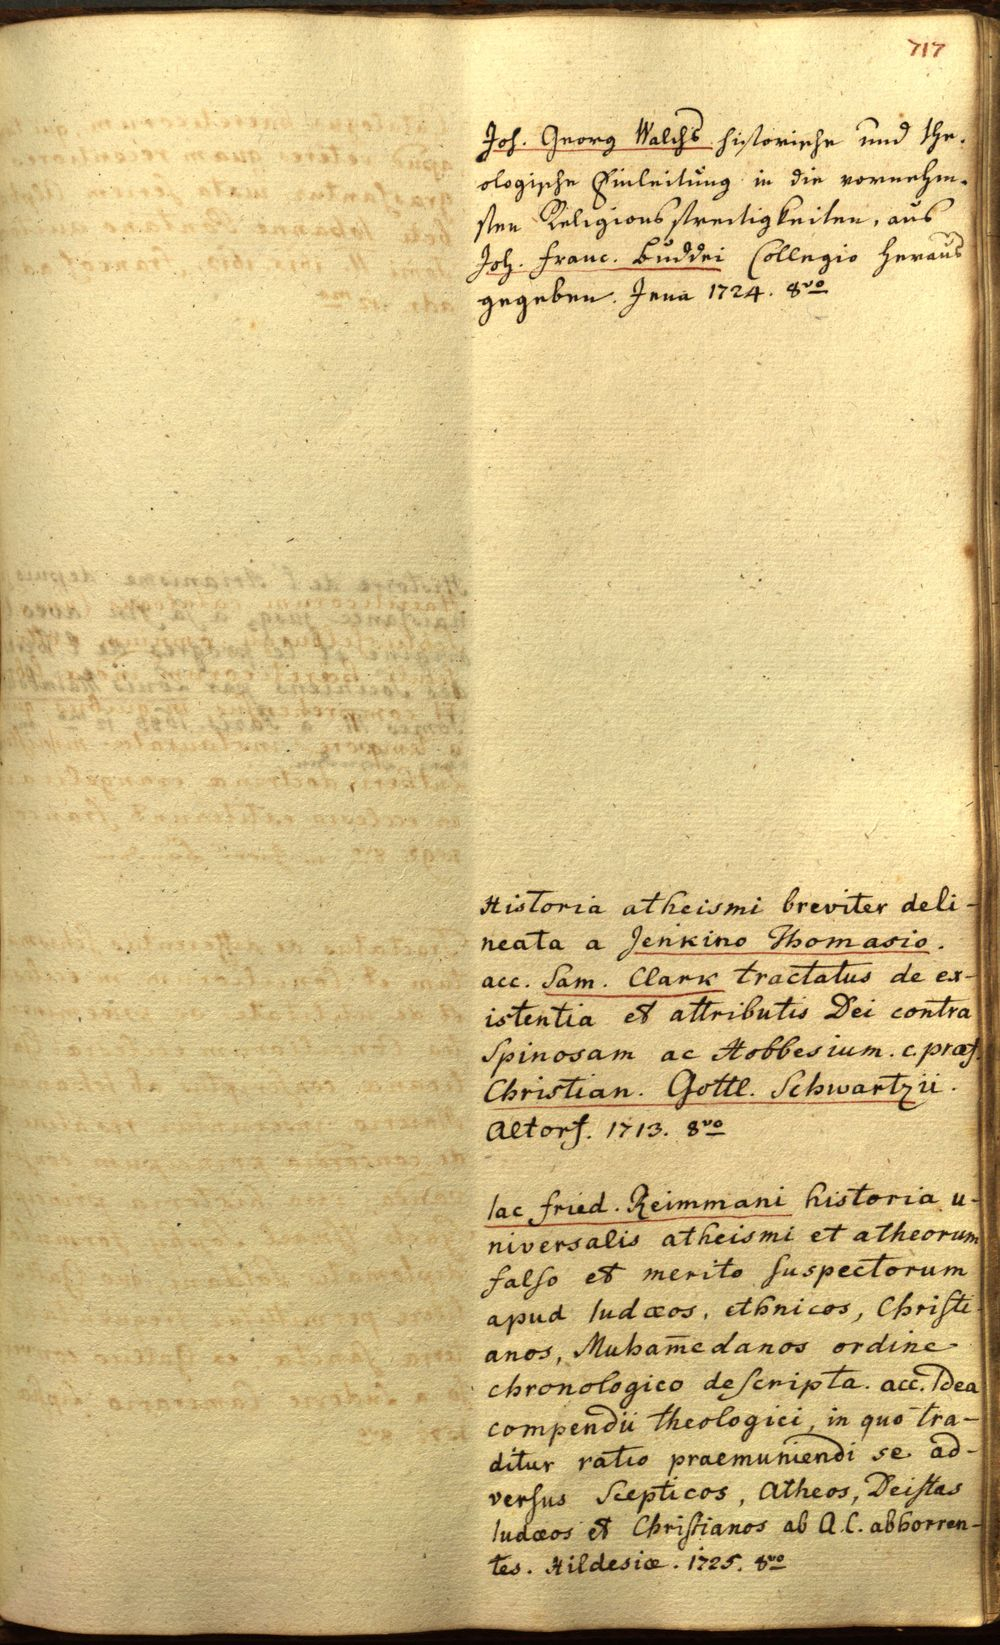 717
Joh. Georg Walchs historische und the-
ologische Einleitung in die vornehm-
sten Religionsstreitigkeiten, aus
Joh. Franc. Buddei Collegio heraus
gegeben. Jena 1724. 8vo
Historia atheismi breviter deli-
neata a Jenkino Thomasio.
acc. Sam. Clark tractatus de ex-
istentia et attributis Dei contra
Spinosam ac Hobbesium. c. præf.
Christian. Gottl. Schwartzii.
Altorf. 1713. 8vo
Iac fried. Reimmani historia u-
niversalis atheismi et atheorum
falso et merito suspectorum
apud Iudæos, ethnicos, Christi-
anos, Muham̅edanos ordine
chronologico descripta. acc. Idea
compendii theologici, in quo tra-
ditur ratio praemuniendi se ad-
versus Scepticos, Atheos, Deistas
Iudæos et Christianos ab A.C. abhorren-
tes. Hildesiæ. 1725. 8vo